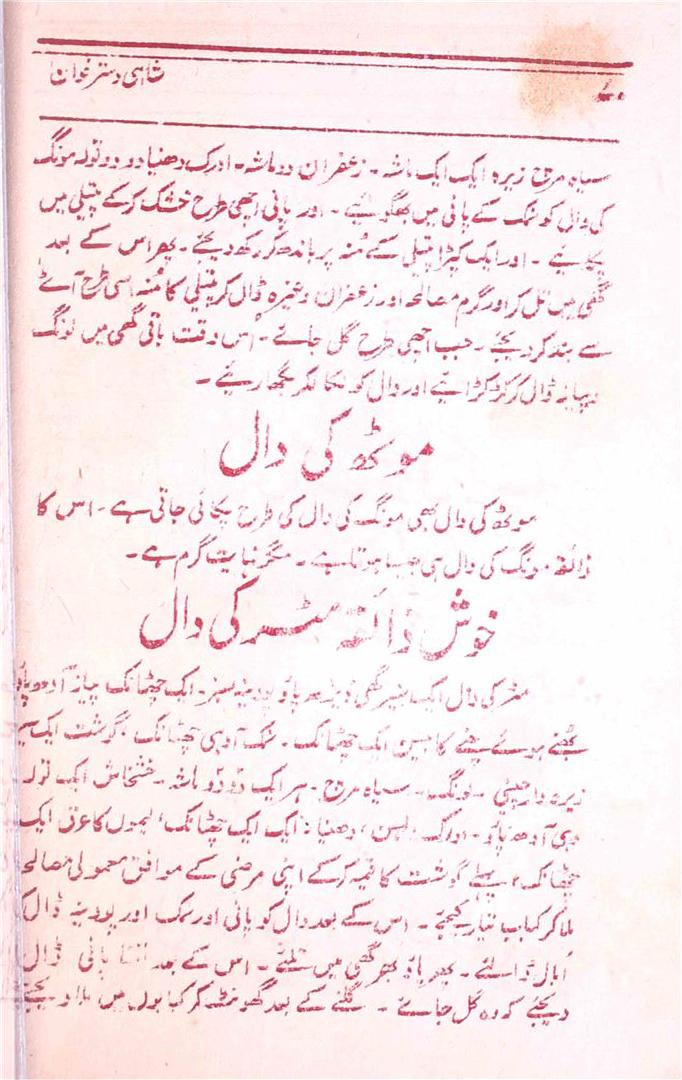 شاہی دسترخوان
۷۰
سیاہ مرچ زیرہ ایک ایک ماشہ ۔ زعفران دو ماشہ ۔ ادرک دھنیا دو دو تولہ مونگ
کی دال کو نمک کے پانی میں بھگوئیے ۔ اور پانی اچھی طرح خشک کرکے پتیلی میں
پکائیے ۔ اور ایک کپڑا پتیلی کے مُنہ پر باندھ کر رکھ دیجئے ۔ پھر اس کے بعد
گھی میں تل کر اور گرم مصالحہ اور زعفران وغیرہ ڈال کر پتیلی کا مُنہ اسی طرح آٹے
سے بند کر دیجئے ۔ جب اچھی طرح گل جائے ۔ اس وقت باقی گھی میں لونگ
و پیاز ڈال کر کڑکڑائیے اور دال کو نکال کر بگھاریئے ۔
موٹھ کی دال
موٹھ کی دال بھی مونگ کی دال کی طرح پکائی جاتی ہے ۔ اس کا
ذائقہ مونگ کی دال ہی جیسا ہوتا ہے ۔ مگر نہایت گرم ہے ۔
خوش ذائقہ مٹر کی دال
مٹر کی دال ایک سیر گھی ڈیڑھ پاؤ پودینہ سبز ۔ ایک چھٹانک پیاز آدھ پاؤ
بھُنے ہوئے چنے کا بیسن ایک چھٹانک ۔ نمک آدھی چھٹانک گوشت ایک سیر
زیرہ دارچینی ۔ لونگ ۔ سیاہ مرچ ۔ ہر ایک دو دو ماشہ ۔ خشخاش ایک تولہ
دہی آدھ پاؤ ۔ ادرک ، لہسن ، دھنیا : ایک ایک چھٹانک ، لیموں کا عرق ایک
چھٹانک ، پہلے گوشت کا قیمہ کرکے اپنی مرضی کے موافق معمولی مصالحہ
ملا کر کباب تیار کیجئے ۔ اس کے بعد دال کو پانی اور نمک اور پودینہ ڈال کر
اُبال ڈالئے ۔ پھر پاؤ بھر گھی میں تلئے ۔ اس کے بعد اتنا پانی ڈال
دیجئے کہ وہ گل جائے ۔ گلنے کے بعد گھونٹ کر کبابوں میں ملا دیجئے